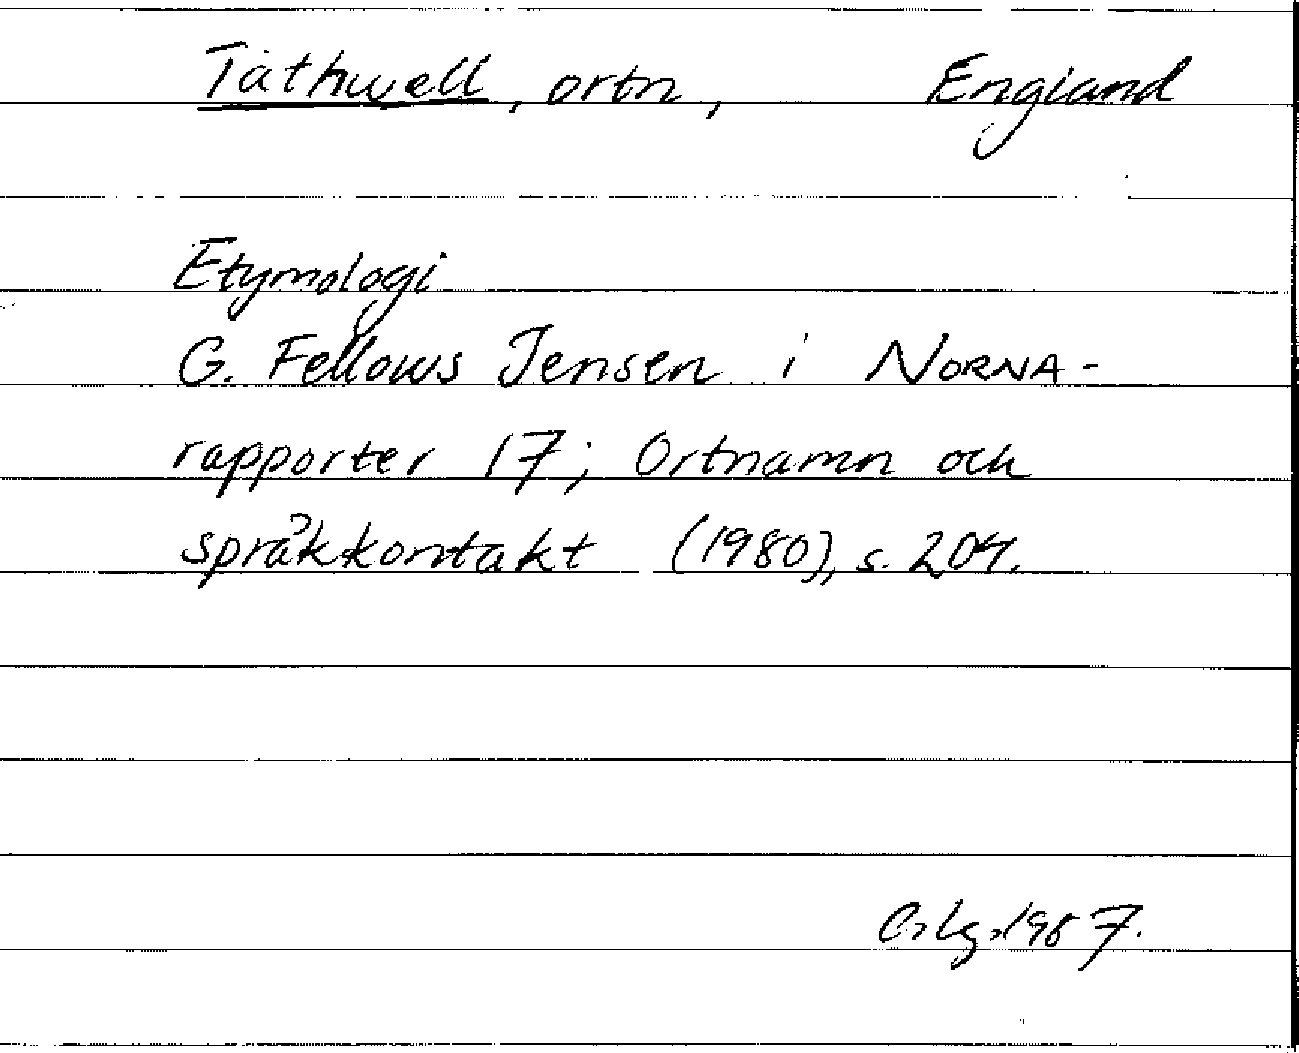 Tathwell, ortn, England
Etymologi
G. Fellows Jensen i NORNA-
rapporter 17; Ortnamn och
språkkontakt (1980), s. 204.
1987.